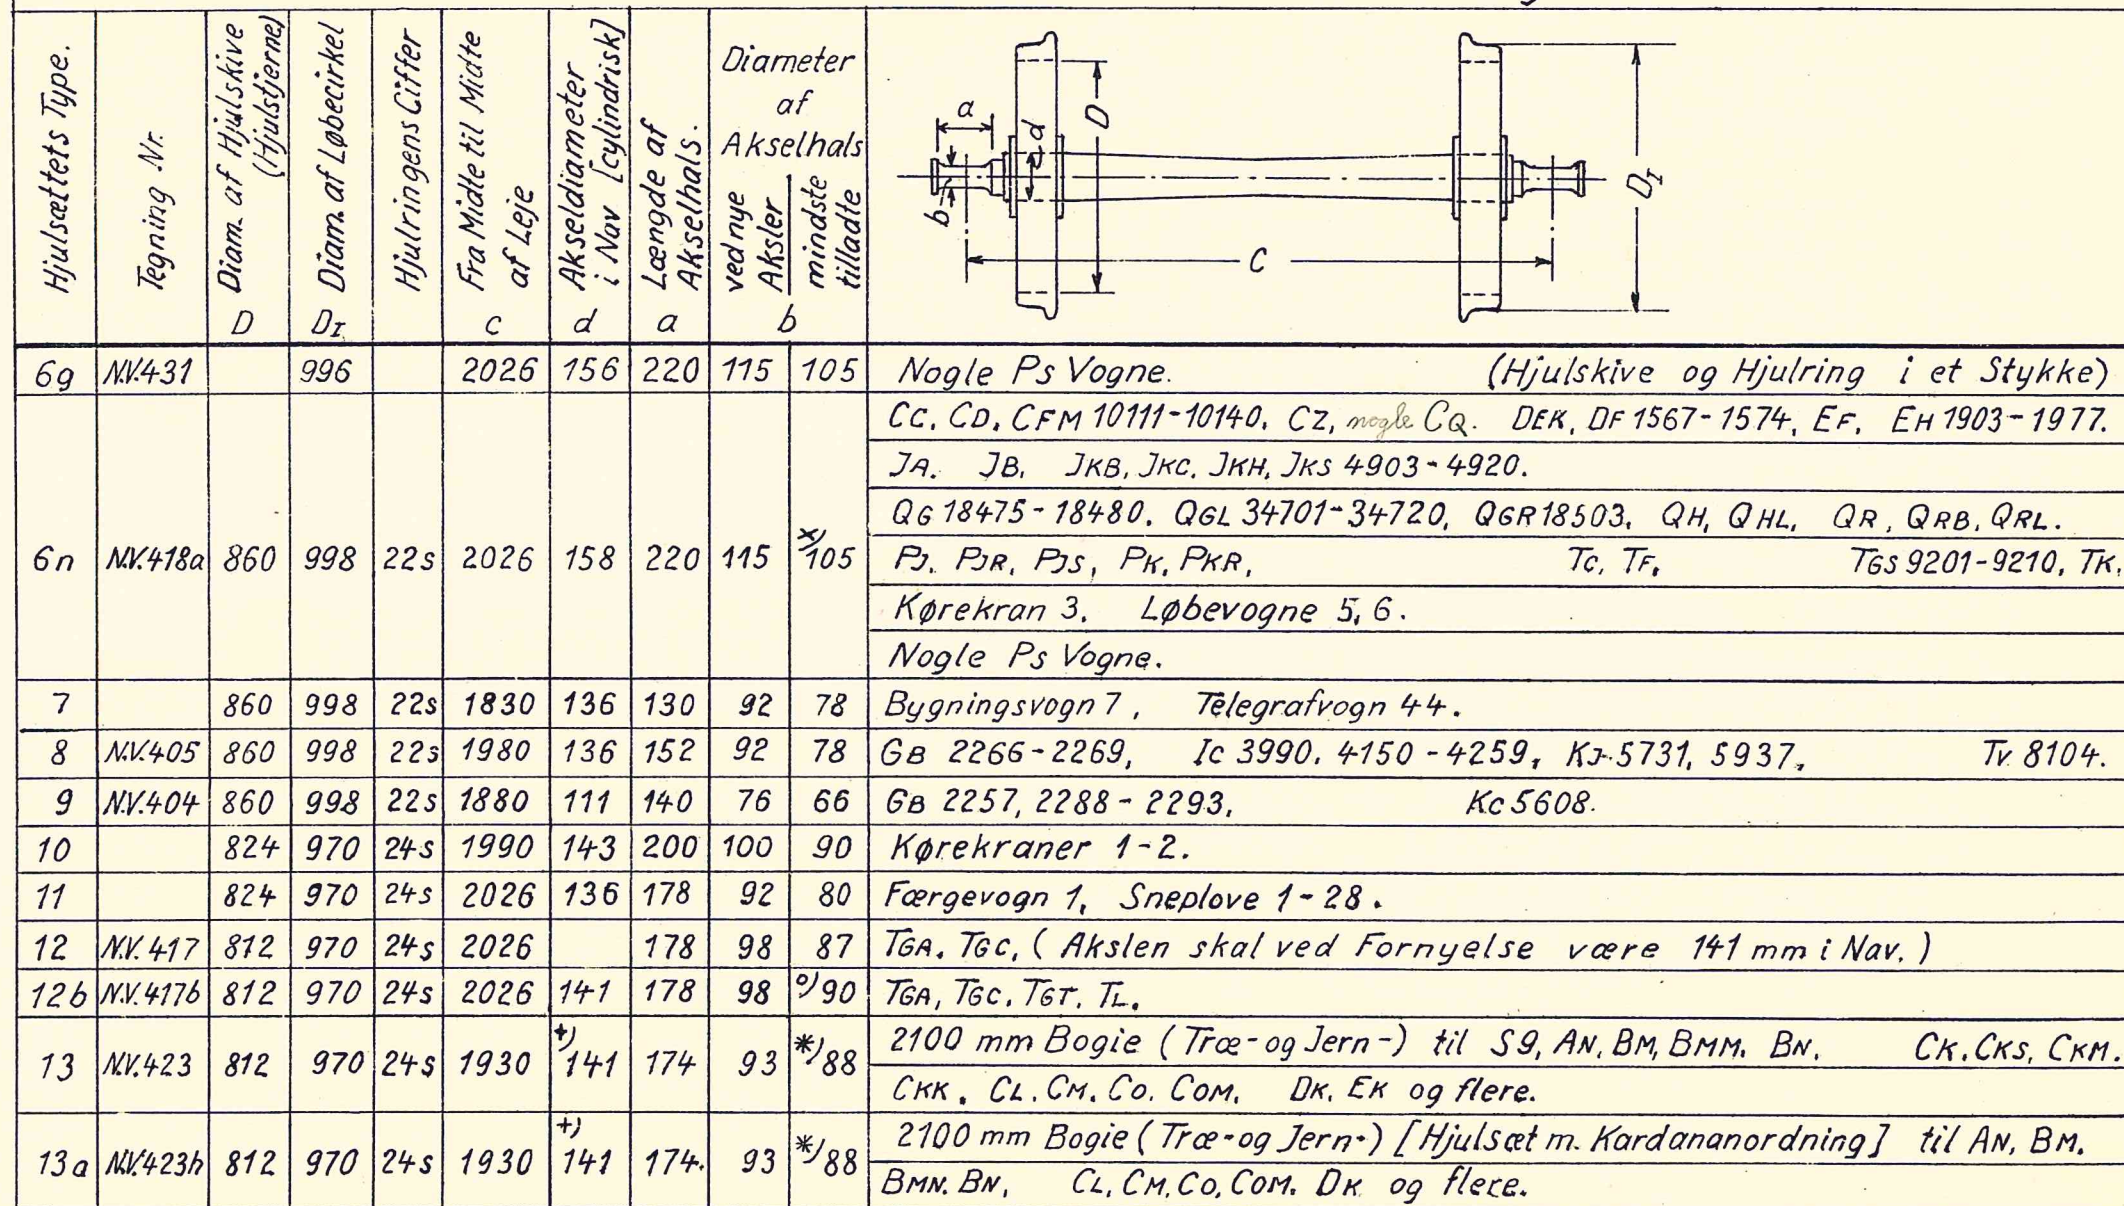 Hjulsættets Type.
Tegning Nr.
Diam. af Hjulskive
(Hjulstjerne)
D
Diam. af Løbecirkel
DI
Hjulringens Ciffer
Fra Midte til Midte
af Leje
c
Akseldiameter
i Nav [cylindrisk]
d
Længde af
Akselhals.
a
Diameter
af
Akselhals
ved nye
Aksler
mindste
tilladte
b
a
b
d
D
DI
C
6g N.V.431 996 2026 156 220 115 105 Nogle Ps Vogne. (Hjulskive og Hjulring i et Stykke)
CC, CD, CFM 10111-10140, CZ, nogle CQ. DEK, DF 1567-1574, EF, EH 1903-1977.
JA. JB, JKB, JKC, JKH, JKS 4903-4920.
QG 18475-18480, QGL 34701-34720, QGR 18503, QH, QHL, QR, QRB, QRL.
6n N.V.418a 860 998 22s 2026 158 220 115 x)105 PJ, PJR, PJS, PK, PKR, TC, TF, TGS 9201-9210, TK,
Kørekran 3, Løbevogne 5, 6.
Nogle Ps Vogne.
7 860 998 22s 1830 136 130 92 78 Bygningsvogn 7, Telegrafvogn 44.
8 N.V.405 860 998 22s 1980 136 152 92 78 GB 2266-2269, Ic 3990, 4150-4259, KJ 5731, 5937, Tv 8104.
9 N.V.404 860 998 22s 1880 111 140 76 66 GB 2257, 2288-2293, Kc 5608.
10 824 970 24s 1990 143 200 100 90 Kørekraner 1-2.
11 824 970 24s 2026 136 178 92 80 Færgevogn 1, Sneplove 1-28.
12 N.V. 417 812 970 24s 2026 178 98 87 TGA, TGC, (Akslen skal ved Fornyelse være 141 mm i Nav.)
12b N.V.417b 812 970 24s 2026 141 178 98 o)90 TGA, TGC, TGT, TL.
2100 mm Bogie (Træ-og Jern-) til S9, AN, BM, BMM, BN, CK, CKS, CKM.
13 N.V.423 812 970 24s 1930 +)141 174 93 *)88
CKK, CL, CM, CO, COM, DK, EK og flere.
2100 mm Bogie (Træ-og Jern-) [Hjulsæt m. Kardananordning] til AN, BM.
13a N.V.423h 812 970 24s 1930 +)141 174. 93 *)88
BMN, BN, CL, CM, CO, COM, DK og flere.